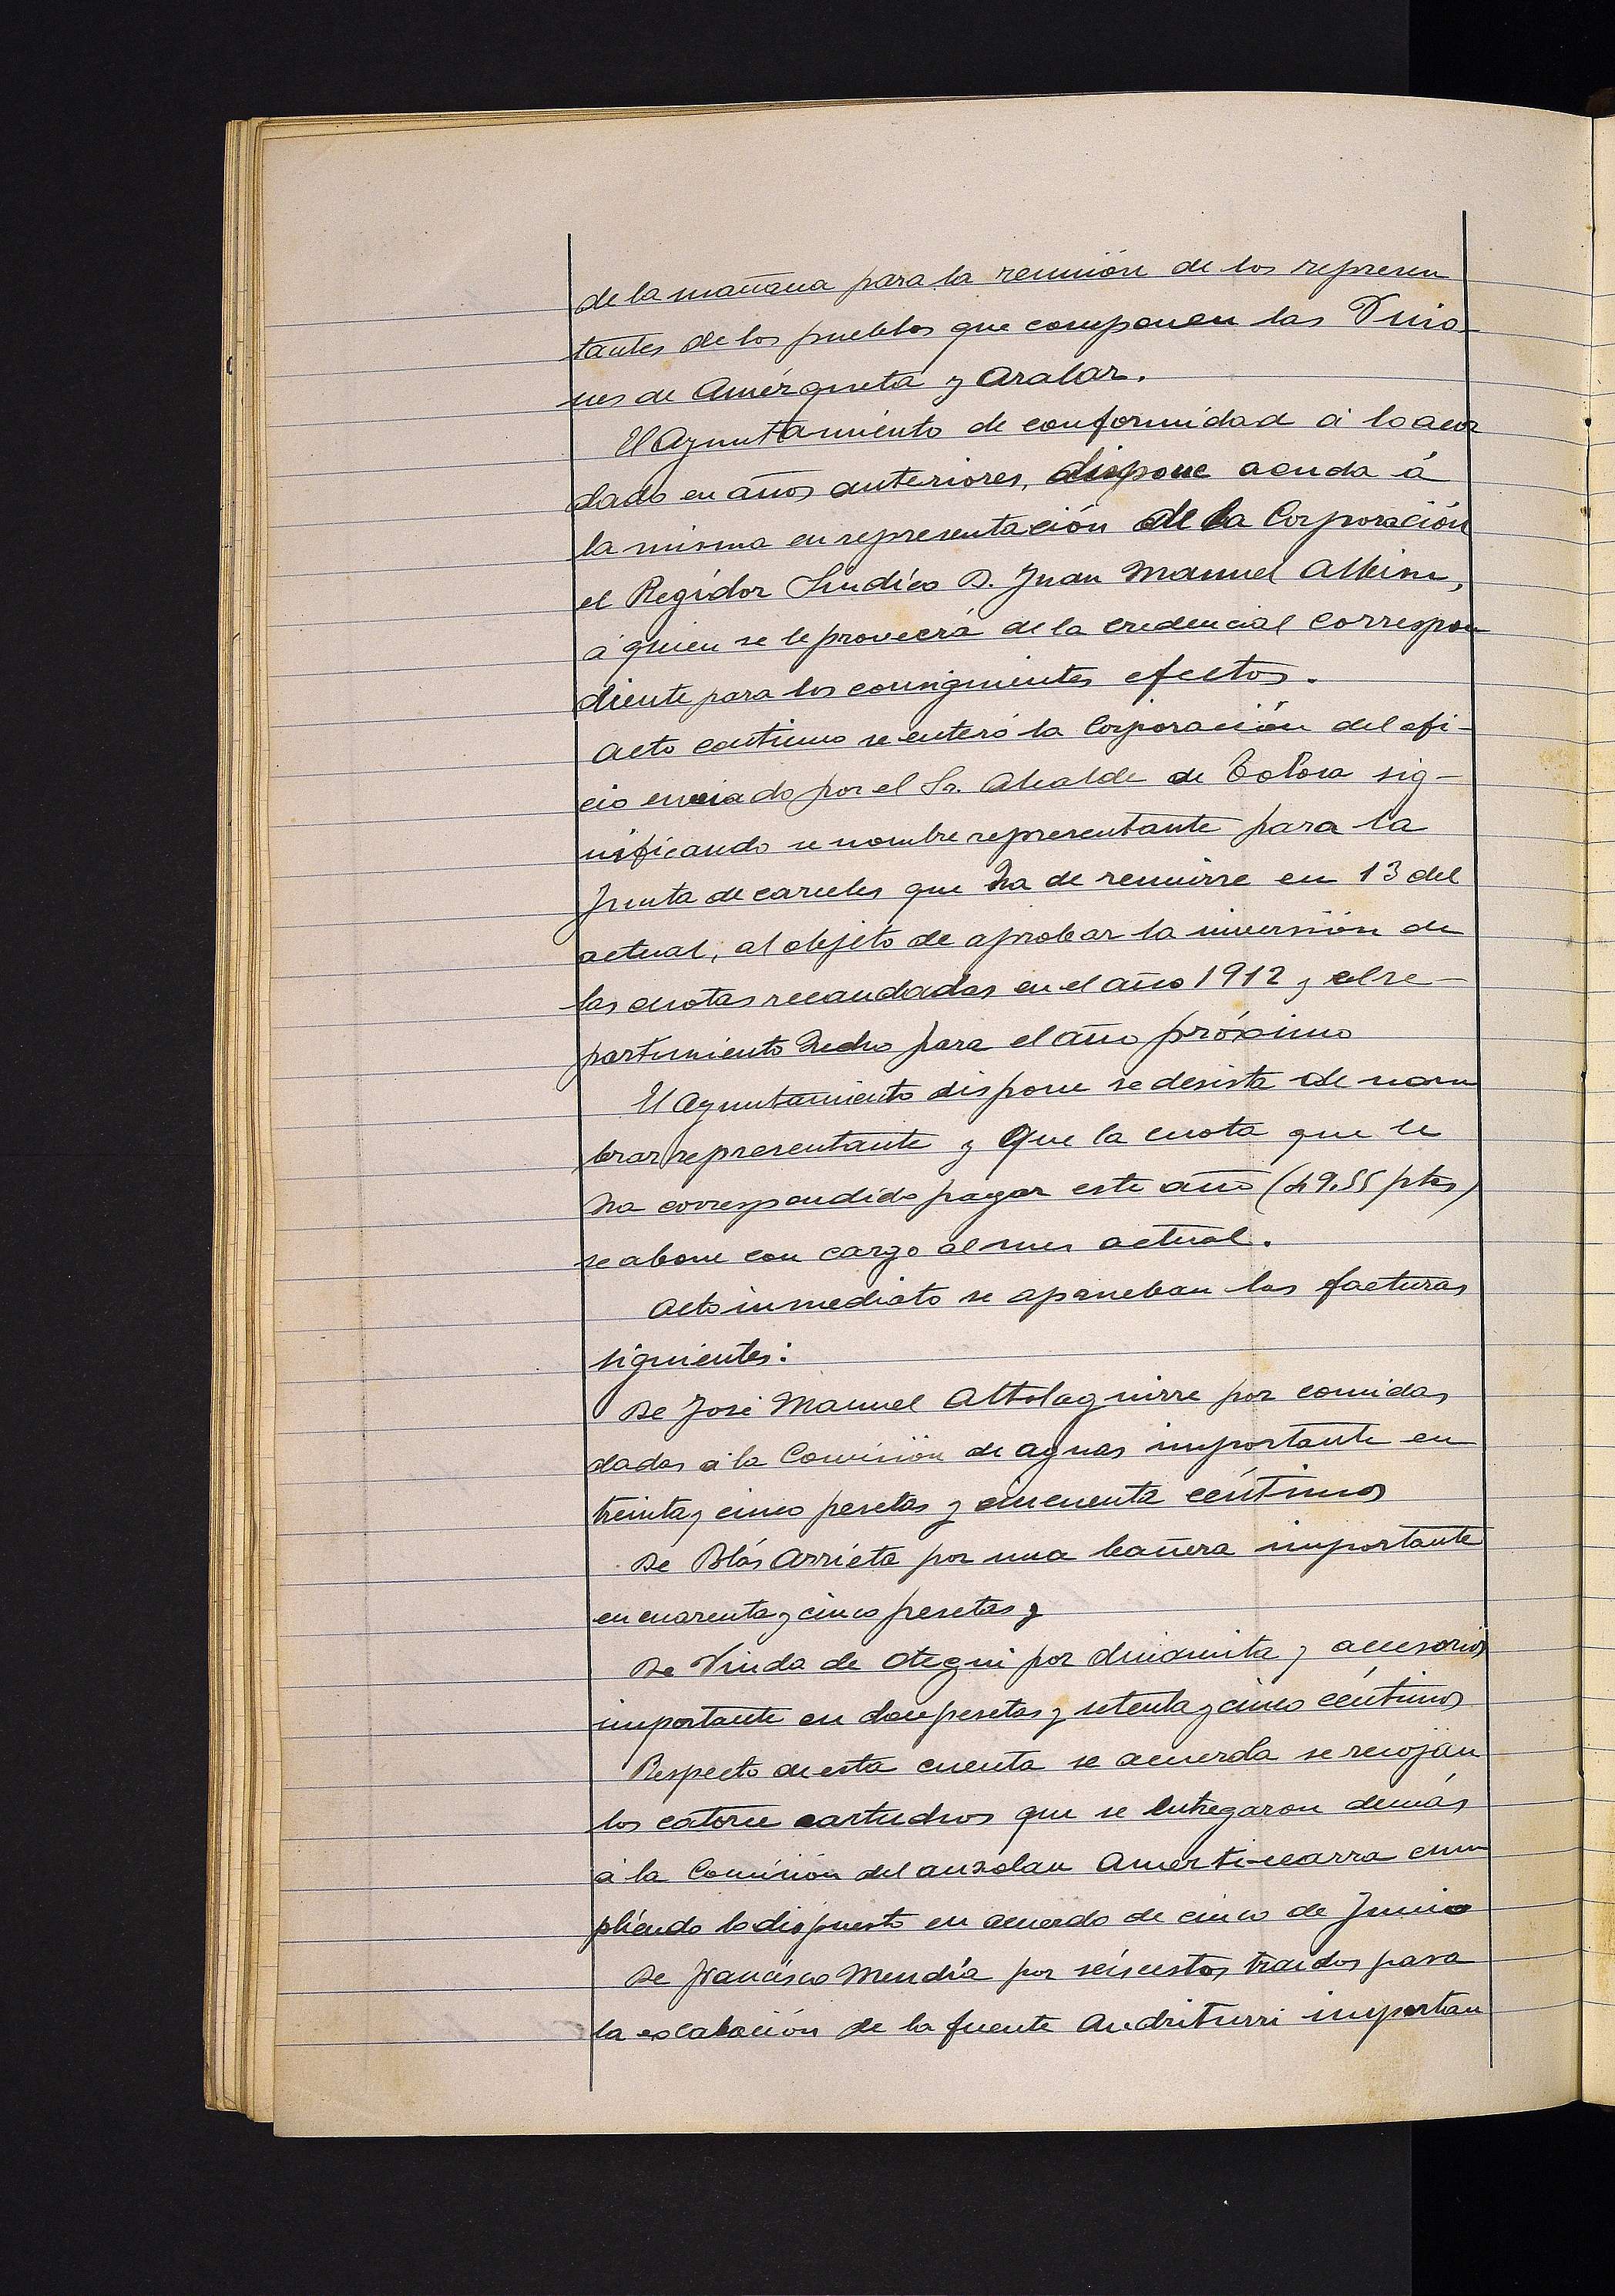 de la mañana para la reunión de los represen
tantes de los pueblos que componen las Unio
nes de Amézqueta y Aralar.
El Ayuntamiento de conformidad á lo acor
dado en años anteriores, dispone acuda á
la misma en representación de la Corporación
el Regidor Síndico D. Juan Manuel Albisu,
á quien se le proveerá de la credencial correspon
diente para los consiguientes efectos.
Acto continuo se enteró la Corporación del ofi-
cio enviado por el Sr. Alcalde de Tolosa sig-
nificando se nombre representante para la
Junta de carceles que ha de reunirse en 13 del
actual, al objeto de aprobar la inversión de
las cuotas recaudadas en el año 1912 y el re-
partimiento hecho para el año próximo
El Ayuntamiento dispone se desista de nom
brar representante y que la cuota que le
ha correspondido pagar este año (49.55 ptas)
se abone con cargo al mes actual.
Acto inmediato se aprueban las facturas
siguientes:
De José Manuel Altolaguirre por comidas
dadas á la Comisión de aguas importante en
treinta y cinco pesetas y cincuenta céntimos
De Blás Arrieta por una bañera importante
en cuarenta y cinco pesetas y
De Viuda de Otegui por dinamita y accesorios
importante en doce pesetas y setenta y cinco céntimos
Respecto de esta cuenta se acuerda se recojan
los catorce cartuchos que se entregaron demás
á la Comisión del auzolan Amezti-
cum
pliendo lo dispuesto en acuerdo de cinco de Junio
De Francisco Mendía por seis cestos traidos para
la de la fuente Andriturri importan